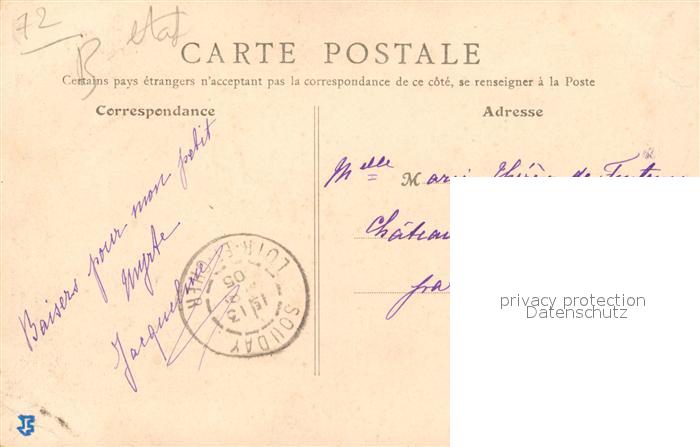 72
B état
CARTE POSTALE
Certains pays étrangers n'acceptant pas la correspondance de ce côté, se renseigner à la Poste
Correspondance
Adresse
Baisers pour mon petit
Myrte
Jacqueline
Melle Marie Thérèse de
Château
par
SOUDAY
LOIR-ET-CHER
13
05
privacy protection
Datenschutz